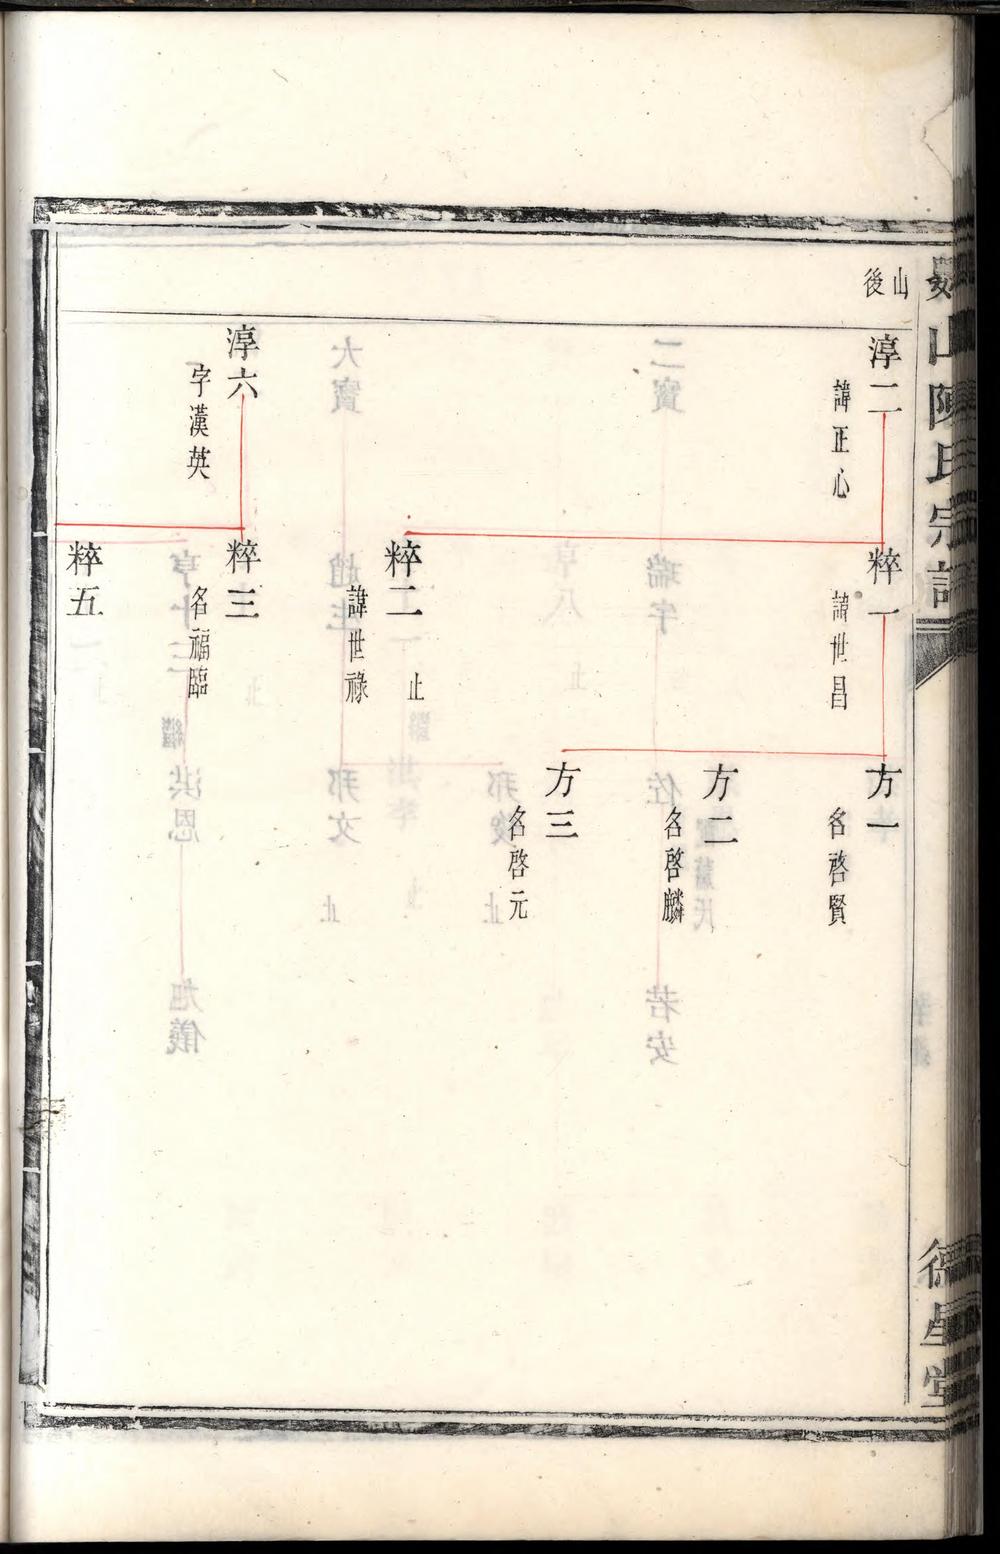 山陳氏宗譜
德星堂
山後
淳二
諱正心
粹一
諱世昌
方一
名啓賢
方二
名啓麟
方三
名啓元
粹二
諱世祿
止
淳六
字漢英
粹三
名福臨
粹五